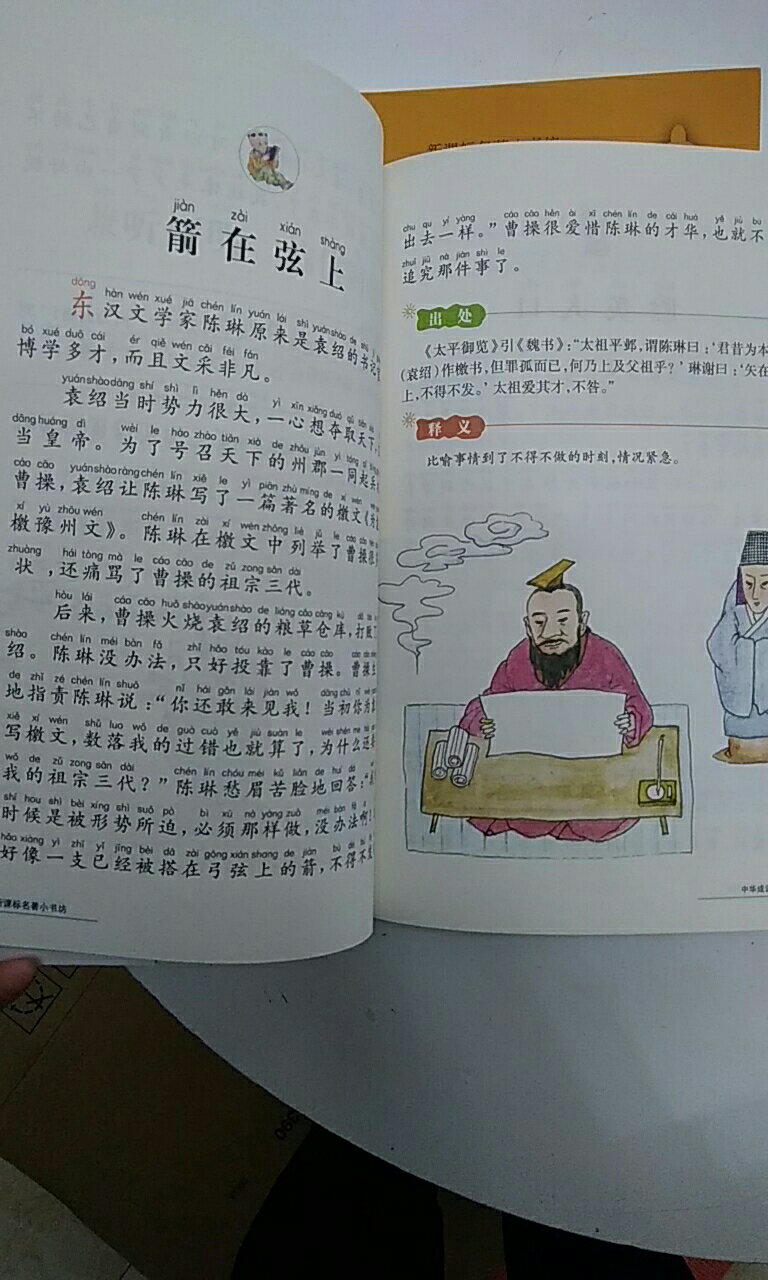 jiàn zài xián shàng
箭在弦上
dōng hàn wén xué jiā chén lín yuán lái shì yuán shào de shū
东汉文学家陈琳原来是袁绍的书记官
bó xué duō cái ér qiě wén cǎi fēi fán
博学多才，而且文采非凡。
yuán shào dāng shí shì lì hěn dà yì xīn xiǎng duó qǔ tiān
袁绍当时势力很大，一心想夺取天下，
dāng huáng dì wèi le hào zhào tiān xià de zhōu jùn yì tóng qǐ
当皇帝。为了号召天下的州郡一同起兵
cáo cāo yuán shào ràng chén lín xiě le yì piān zhù míng de xí wén
曹操，袁绍让陈琳写了一篇著名的檄文《为
xí yù zhōu wén chén lín zài xí wén zhōng liè jǔ le cáo cāo
檄豫州文》。陈琳在檄文中列举了曹操
zhuàng hái tòng mà le cáo cāo de zǔ zong sān dài
状，还痛骂了曹操的祖宗三代。
hòu lái cáo cāo huǒ shāo yuán shào de liáng cǎo cāng kù
后来，曹操火烧袁绍的粮草仓库，打败
shào chén lín méi bàn fǎ zhǐ hǎo tóu kào le cáo cāo
绍。陈琳没办法，只好投靠了曹操。曹操
de zhǐ zé chén lín shuō nǐ hái gǎn lái jiàn wǒ dāng chū nǐ
地指责陈琳说：“你还敢来见我！当初你为
xiě xí wén shǔ luo wǒ de guò cuò yě jiù suàn le wèi shén me
写檄文，数落我的过错也就算了，为什么还
wǒ de zǔ zong sān dài chén lín chóu méi kǔ liǎn de huí dá
我的祖宗三代？”陈琳愁眉苦脸地回答：“
shí hou shì bèi xíng shì suǒ pò bì xū nà yàng zuò méi bàn fǎ
时候是被形势所迫，必须那样做，没办法啊！
hǎo xiàng yì zhī yǐ jīng bèi dā zài gōng xián shang de jiàn bù dé bù
好像一支已经被搭在弓弦上的箭，不得不发
课标名著小书坊
chu qu yí yàng cáo cāo hěn ài xī chén lín de cái huá yě jiù bù
出去一样。”曹操很爱惜陈琳的才华，也就不
zhuī jiū nà jiàn shì le
追究那件事了。
出处
《太平御览》引《魏书》：“太祖平邺，谓陈琳曰：‘君昔为本
（袁绍）作檄书，但罪孤而已，何乃上及父祖乎？’琳谢曰：‘矢在
上，不得不发。’太祖爱其才，不咎。”
释义
比喻事情到了不得不做的时刻，情况紧急。
中华成
390